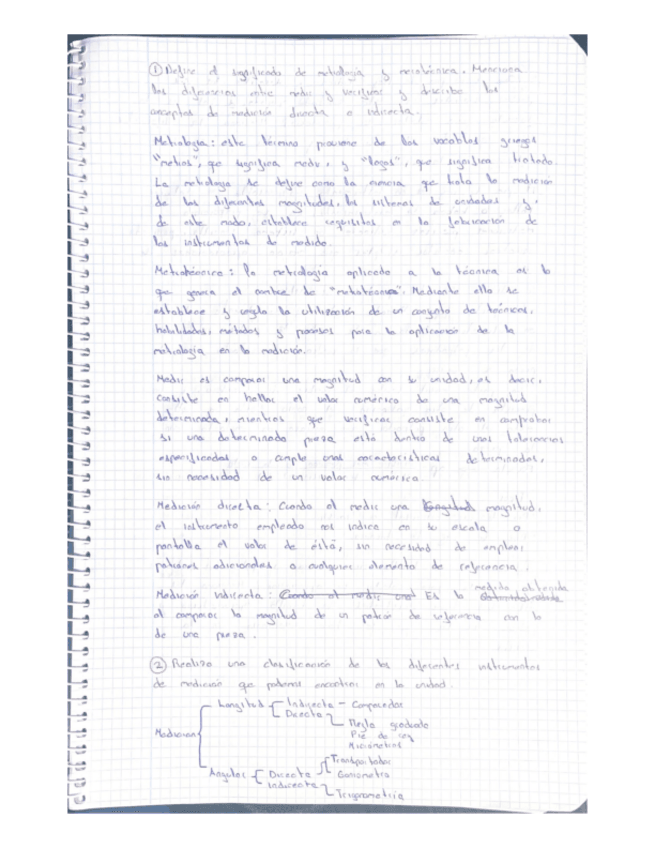 ① Define el significado de metrología y metrotécnica. Menciona
las diferencias entre medir y verificar y describe los
conceptos de medición directa e indirecta.
Metrología: este término proviene de los vocablos griegos
"metros", que significa medir, y "logos", que significa tratado.
La metrología se define como la ciencia que trata la medición
de las diferentes magnitudes, los sistemas de unidades y,
de este modo, establece requisitos en la fabricación de
los instrumentos de medida.
Metrotécnica: la metrología aplicada a la técnica es lo
que genera el nombre de "metrotécnica". Mediante ella se
establece y regla la utilización de un conjunto de técnicas,
habilidades, métodos y procesos para la aplicación de la
metrología en la medición.
Medir es comparar una magnitud con su unidad, es decir,
consiste en hallar el valor numérico de una magnitud
determinada, mientras que verificar consiste en comprobar
si una determinada pieza está dentro de unas tolerancias
especificadas o cumple unas características determinadas,
sin necesidad de un valor numérico
Medición directa: Cuando al medir una longitud magnitud,
el instrumento empleado nos indica en su escala o
pantalla el valor de ésta, sin necesidad de emplear
patrones adicionales o cualquier elemento de referencia.
Medición indirecta: Cuando al medir una Es la medida obtenida
al comparar la magnitud de un patrón de referencia con la
de una pieza.
② Realiza una clasificación de los diferentes instrumentos
de medición que podamos encontrar en la unidad.
Longitud Indirecta - Comparador
Directa
Regla graduada
Medición
Pie de rey
Micrómetros
Transportador
Angular Directa Goniómetro
Indirecta
Trigonometría